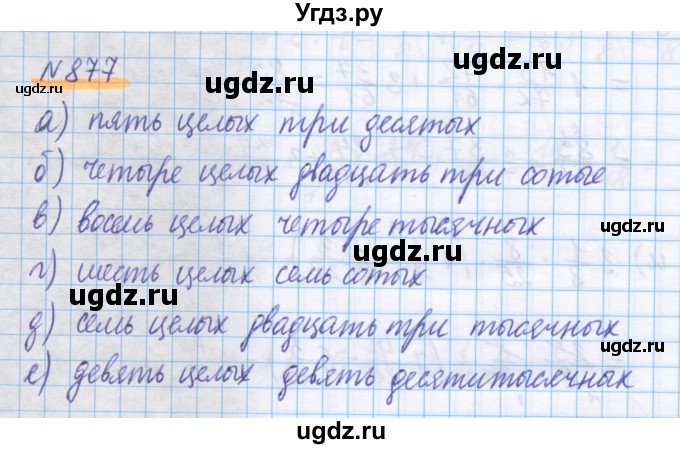 Угдз.ру
N 877
ugdz.ru ugdz.ru
а) пять целых три десятых
ugdz.ru
б) четыре целых двадцать три сотые
в) восемь целых четыре тысячных
ugdz.ru ugdz.ru
г) шесть целых семь сотых
ugdz.ru
д) семь целых двадцать три тысячных
ugdz.ru
е) девять целых девять десятитысячных
ugdz.ru